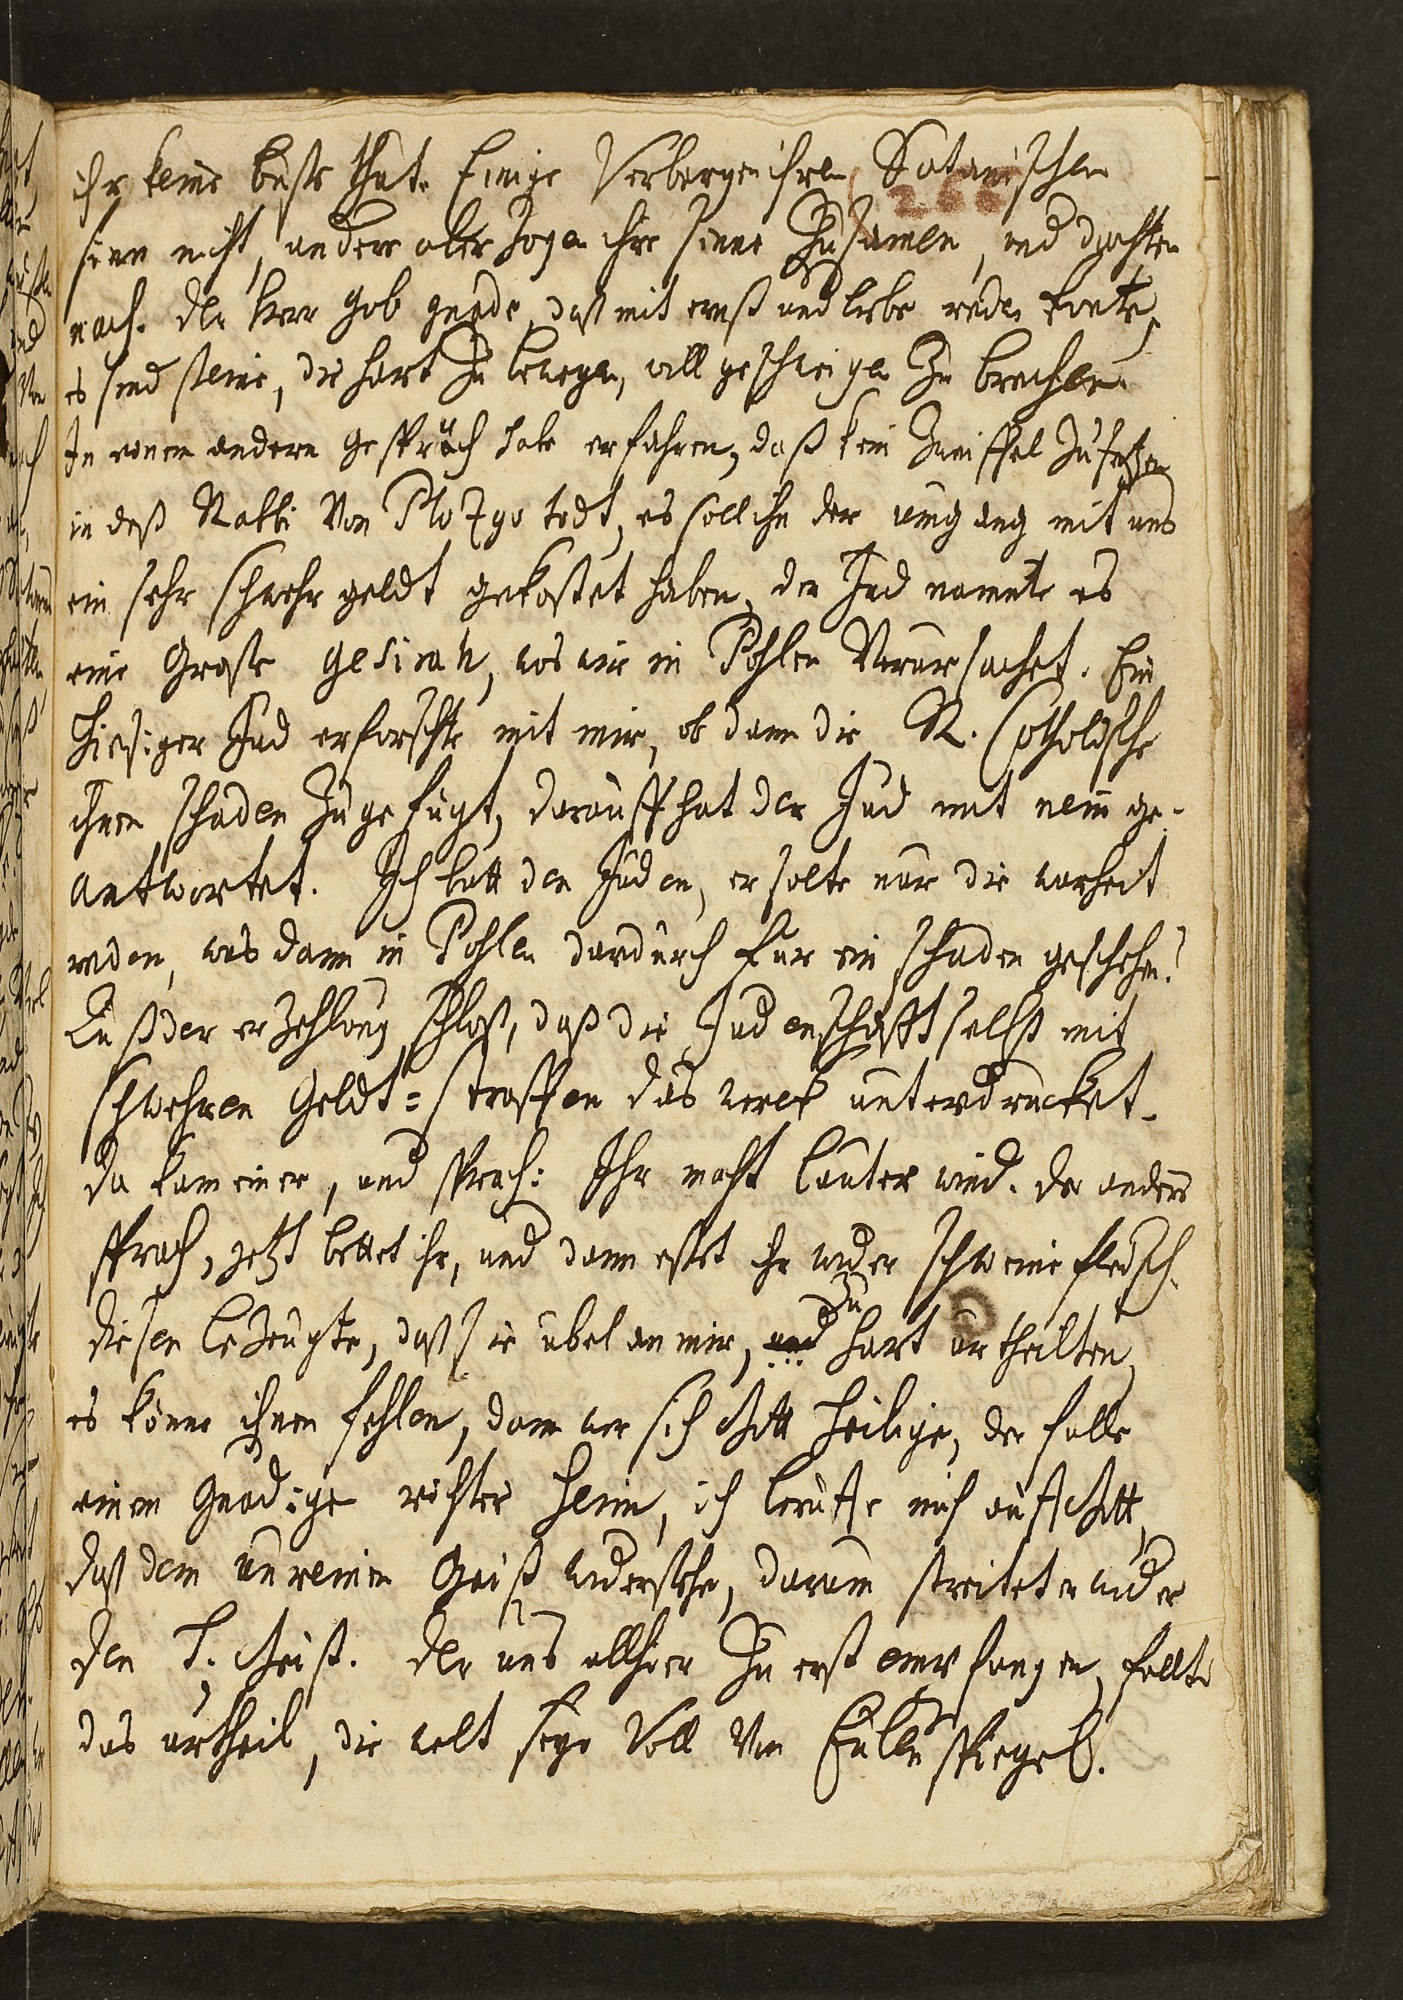 ihr keine buße thut. Einige Verbergen ihren Satanischen
266
sinn nicht, andere aber zogen ihre sinne Zusamen, und dachten
nach. der Herr gab gnade, daß mit ernst und liebe reden konte,
es sind steine, die hart zu bewegen, will geschweigen zu brechen.
In einem andern gespräch habe erfahren, daß kein Zweiffel zu setzen
in deß Rabbi Von Plotzgo todt, es soll ihn der umgang mit uns
ein sehr schwehr geldt gekostet haben, der Jud nannte es
eine Große gesirah, was wir in Pohlen Verursachet. Ein
hiesiger Jud erforschte mit mir, ob dann die R. Catholische
ihnen schaden zugefügt, darauff hat der Jud mit nein ge-
antwortet. Ich batt den Juden, er solte nur die warheit
reden, was dann in Pohlen dardurch für ein schaden geschehen?
Auß der erzehlung schloß, daß die Judenschafft selbst mit
schwehren Geldt=straffen das werck unterdrucket.
Da kam einer, und sprach: Ihr macht lauter wind. der andere
sprach, jetzt bettet ihr, und dann esset ihr wider schweinefleisch.
diesen bezeugte, daß sie übel an mir, und zu hart urtheilten,
es könne ihnen fehlen, dann wer sich Gott heilige, der falle
einem Gnädigen richter heim, ich beruffe mich auf Gott,
daß dem unreinen Geist widerstehe, darum streitet er wider
den h. Geist. der uns allhier zu erst empfangen, fällte
das urtheil, die welt seye Voll Von Eullenspiegel.